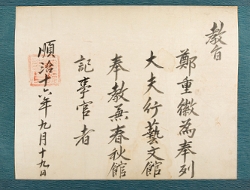 教旨
鄭重徽為奉列
大夫行藝文館
奉教兼春秋館
記事官者
順治十六年九月十九日